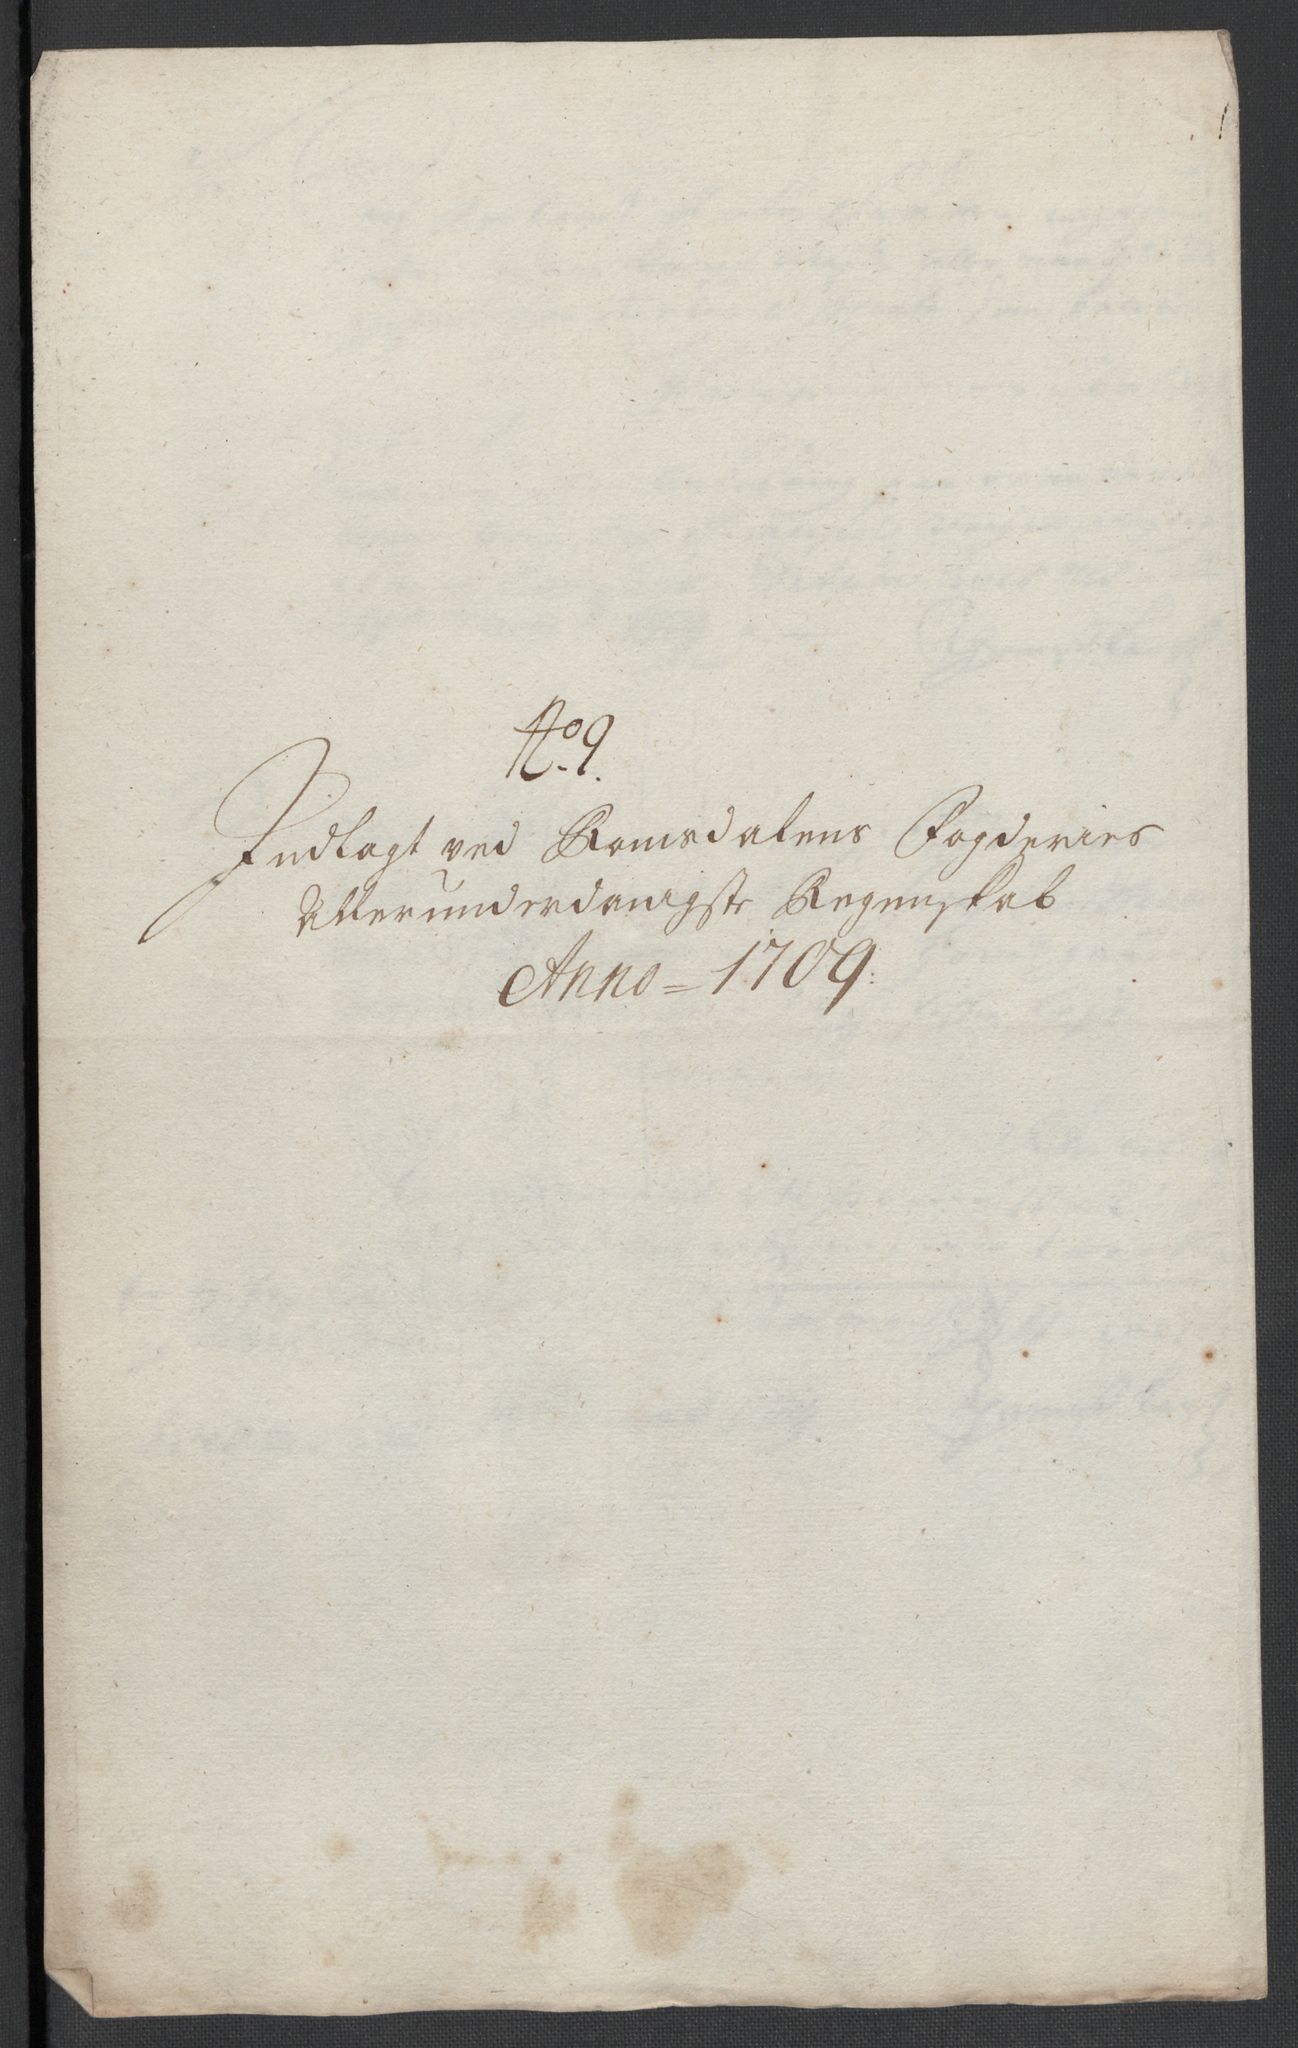 No. 9.
Indlagt ved Romsdalens Fogderies
Allerunderdanigste Regenskab
Anno = 1709.